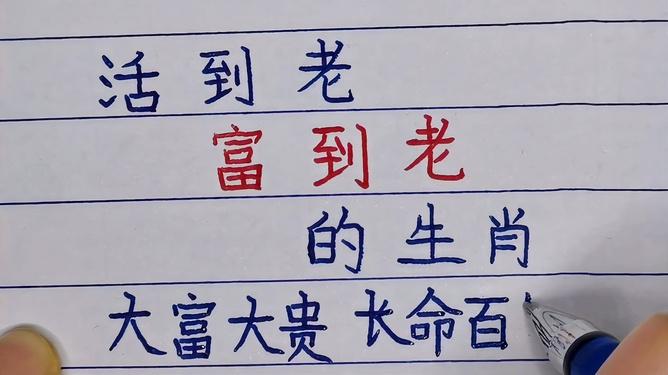 活到老
富到老
的生肖
大富大贵 长命百